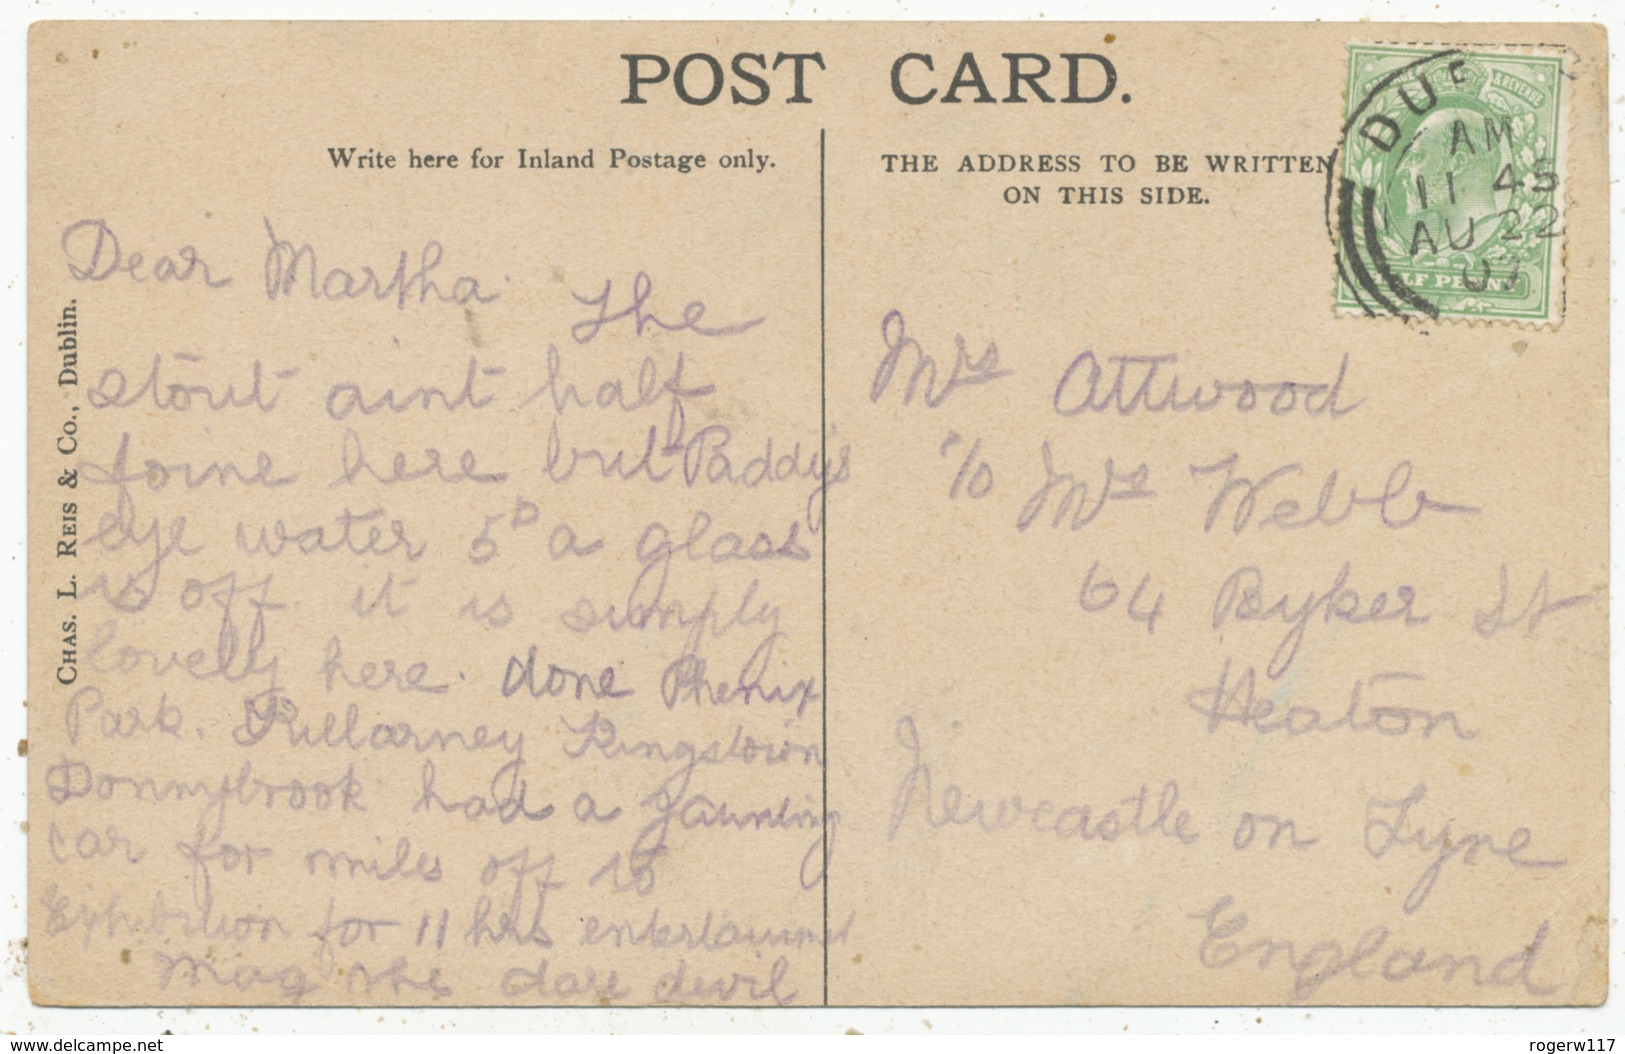 POST CARD.
Write here for Inland Postage only.
THE ADDRESS TO BE WRITTEN
ON THIS SIDE.
CHAS. L. REIS & Co., Dublin.
DU
AM
11 45
AU 22
07
HALF PENNY
Dear Martha. The
stout aint half
foine here but Paddys
eye water 5D a glass
is off. it is simply
lovely here. done Phenix
Park. Killarney Kingstown
Donnybrook had a jaunting
car for miles off to
Exhibition for 11 hrs entertainmet
Mag the dare devil
Mrs Attwood
c/o Mrs Webb
64 Byker St
Heaton
Newcastle on Tyne
England
www.delcampe.net
rogerw117